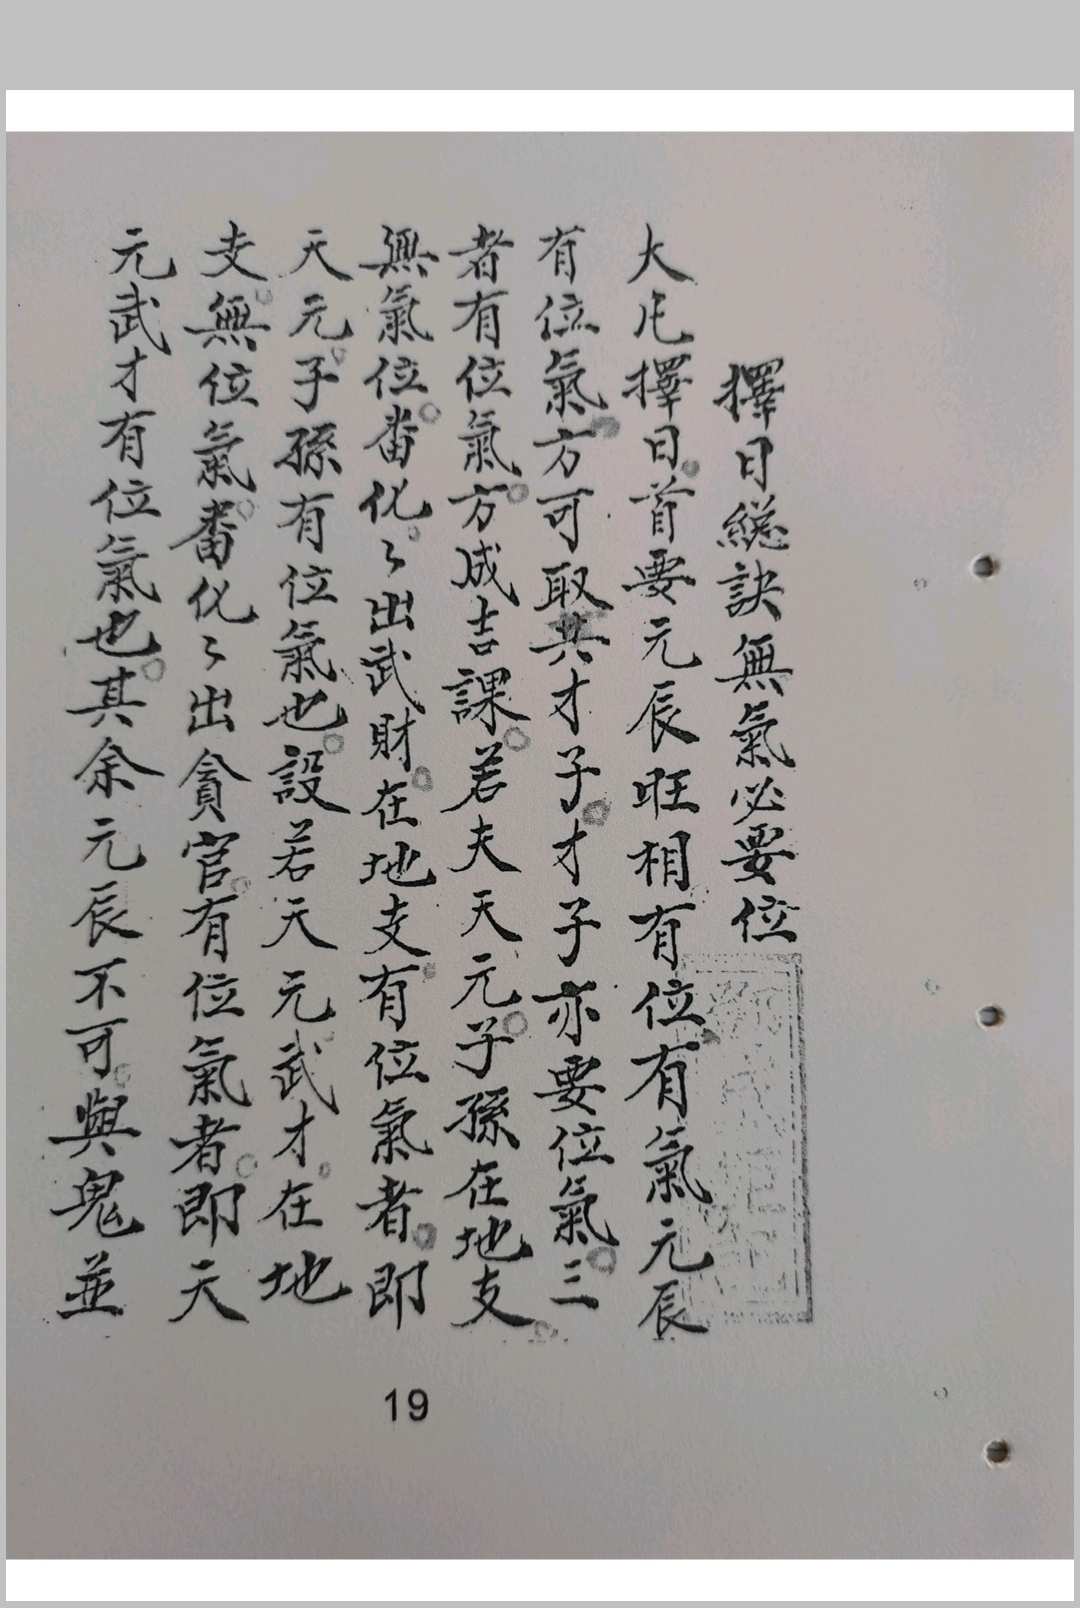 擇日總訣無氣必要位
大凡擇日首要元辰旺相有位有氣元辰
有位氣方可取其才子才子亦要位氣三
者有位氣方成吉課若夫天元子孫在地支
無氣位畨化〻出武財在地支有位氣者即
天元子孫有位氣也設若天元武才在地
支無位氣畨化〻出貪官有位氣者即天
元武才有位氣也其余元辰不可與鬼並
19